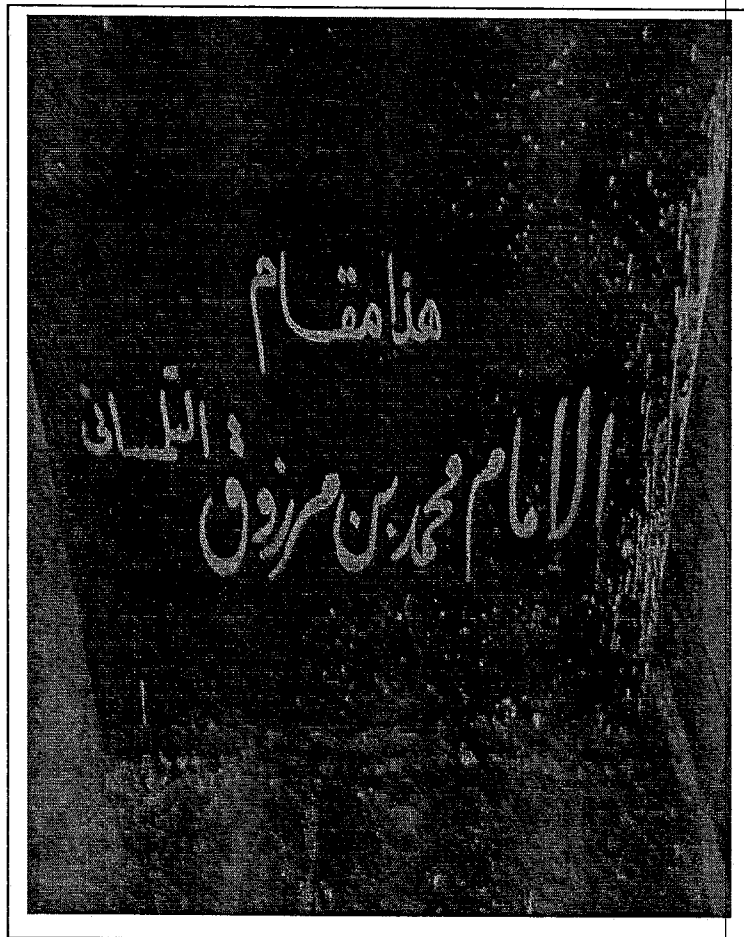 هذا مقام
الامام محمد بن مرزوق التلمساني